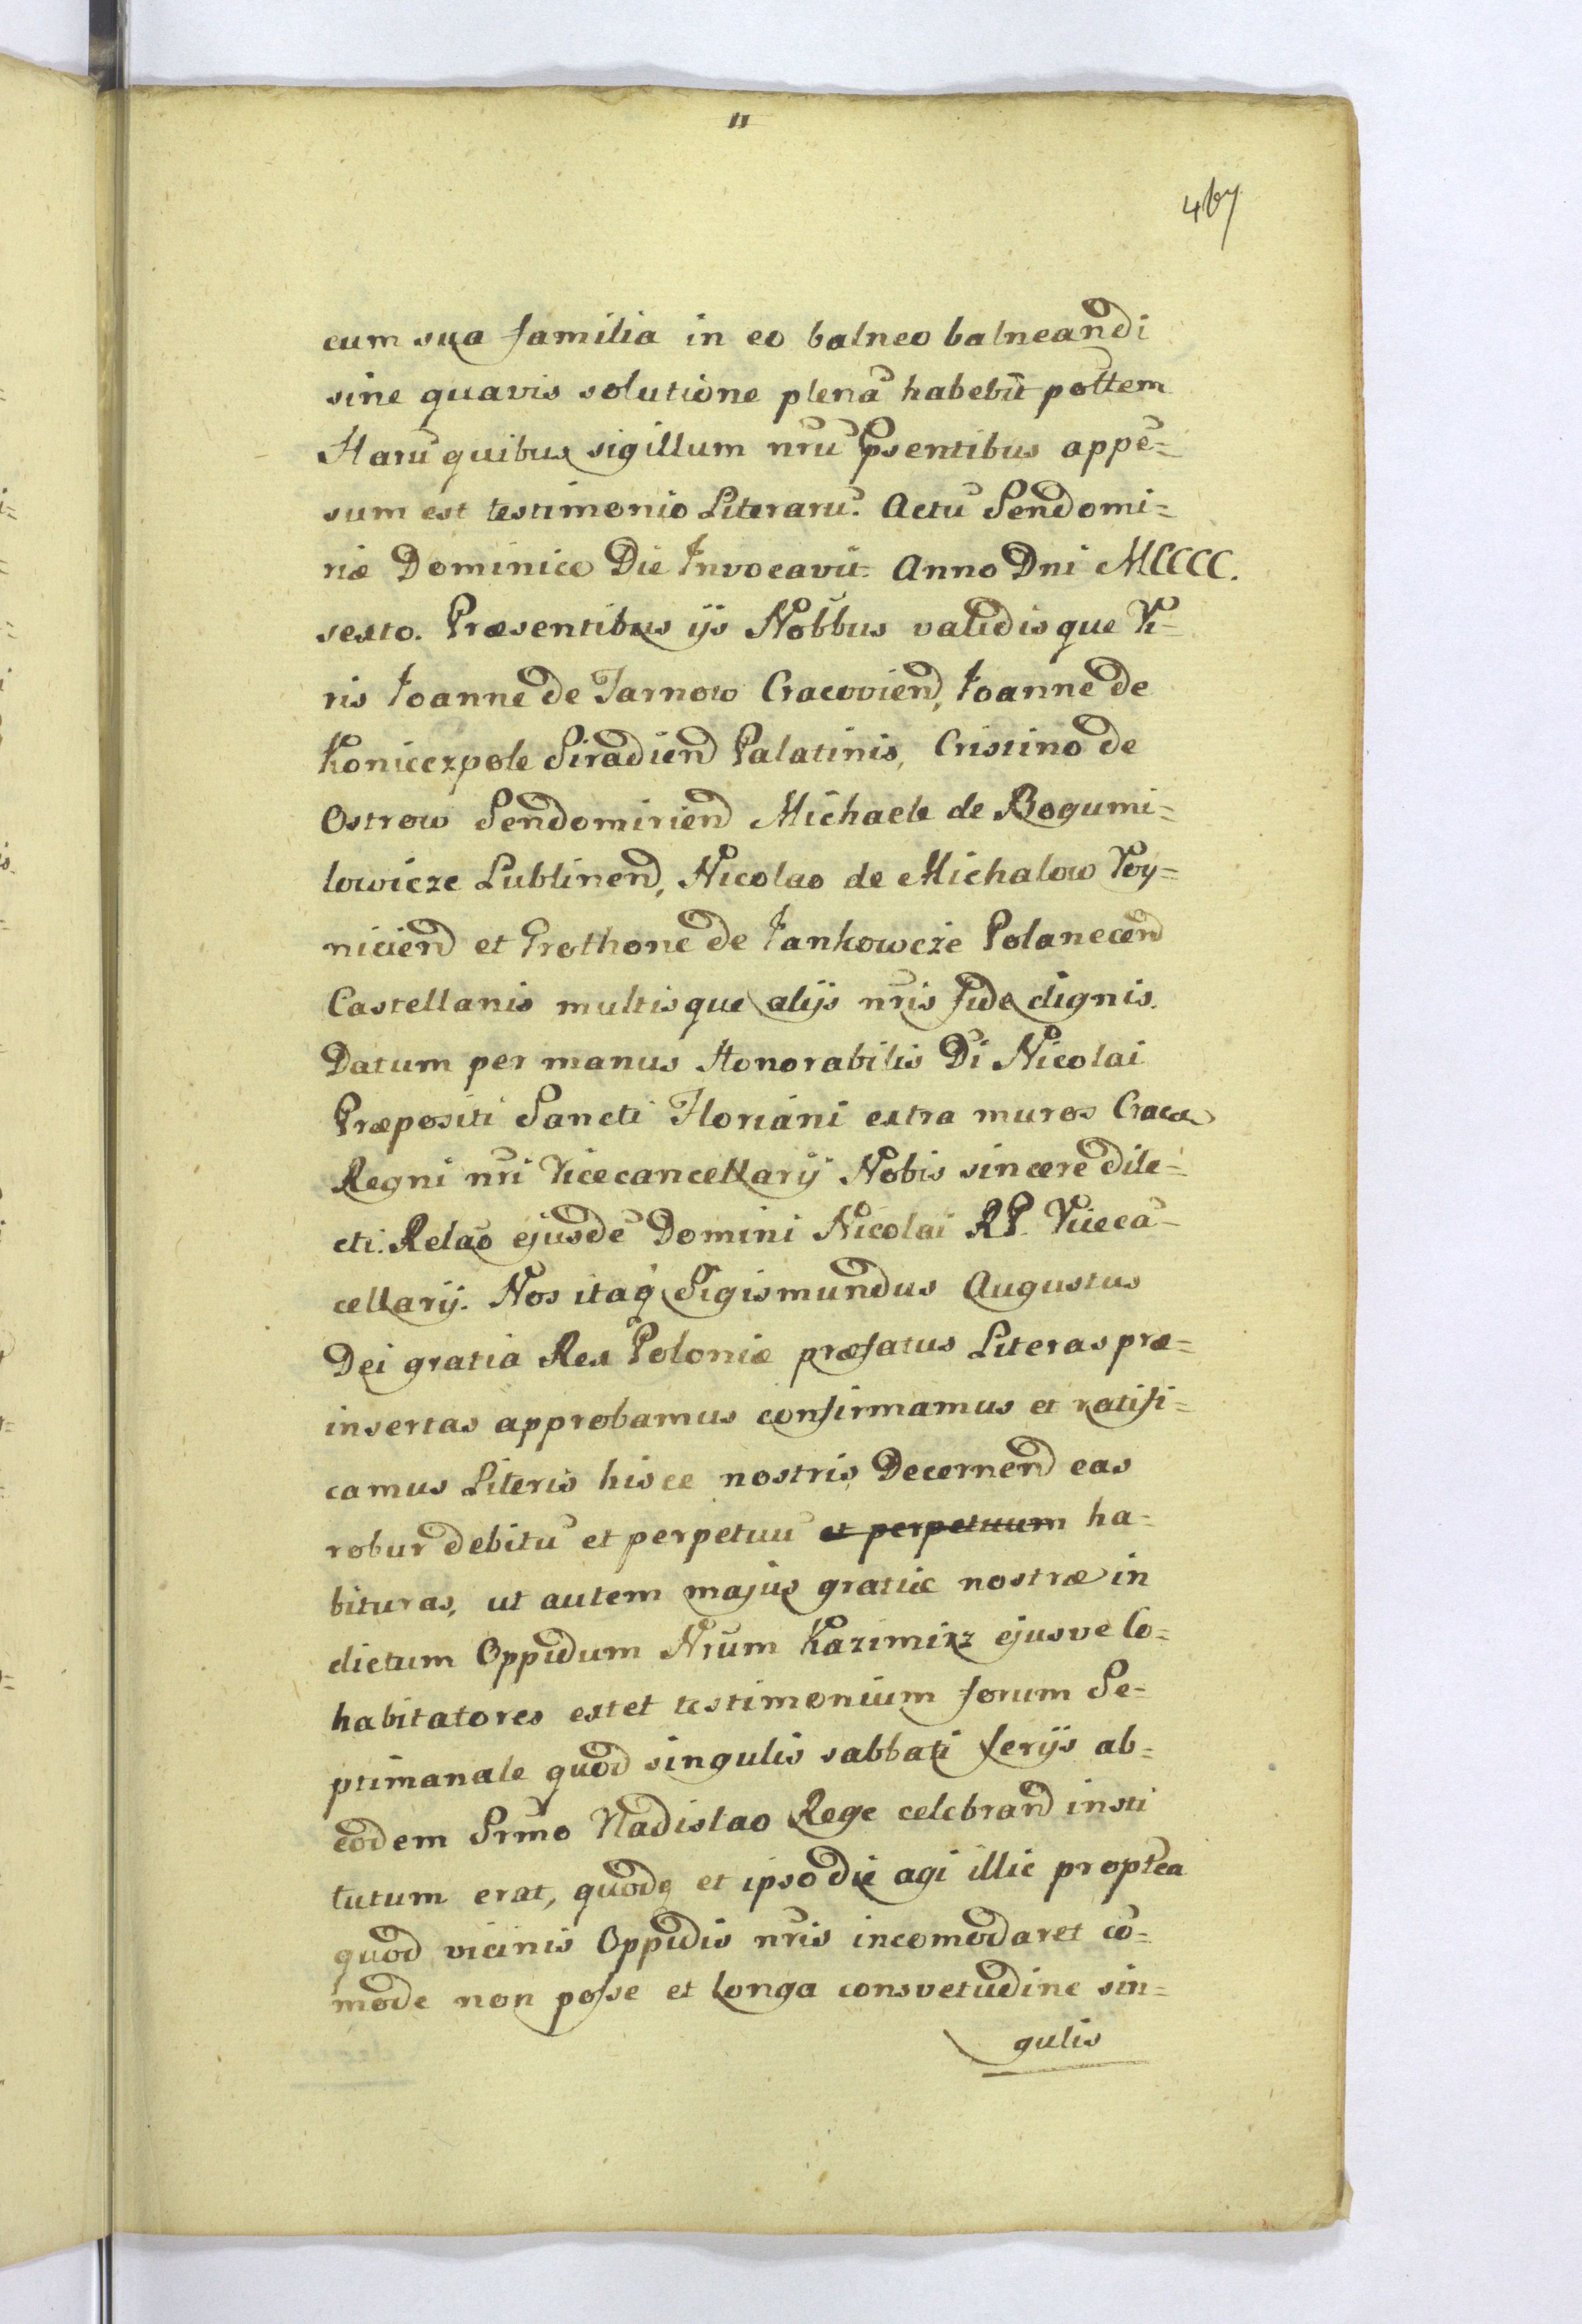 11
467
cum sua familia in eo balneo balneandi
sine quavis solutione plenā habebit pottem
Harū quibus sigillum nrū psentibus appē=
sum est testimonio Literarū. Actū Sendomi=
riæ Dominico Die Invocavit Anno Dni MCCCC.
sexto. Præsentibus ijs Nobbus validisque Vi=
ris Joanne de Tarnow Cracovień, Joanne de
Konieczpole Siradień Palatinis, Cristino de
Ostrow Sendomirień Michaele de Bogumi=
lowicze Lublineń, Nicolao de Michalow Voy=
nicień et Prothone de Jankowcże Polaneceń
Castellanis multisque alijs nris fide dignis.
Datum per manus Honorabilis Di Nicolai
Præpositi Sancti Floriani extra muros Craca
Regni nri Vicecancellarij Nobis sincere dile=
cti. Relaō ejusdē Domini Nicolai RP. Vicecā=
cellarij. Nos itaq Sigismundus Augustus
Dei gratia Rex Poloniæ præfatus Literas præ=
insertas approbamus confirmamus et ratifi=
camus Literis hisce nostris Decerneń eas
robur debitū et perpetuū et perpetuum ha=
bituras, ut autem majus gratiæ nostræ in
dictum Oppidum Nrum Kazimirz ejusve Co=
habitatores extet testimonium forum Se=
ptimanale quod singulis sabbati ferijs ab=
eodem Srmo Vladislao Rege celebrań insti
tutum erat, quodq et ipso die agi illic proptea
quod vicinis Oppidis nris incomodaret cō=
mode non posse et longa consvetudine sin=
gulis